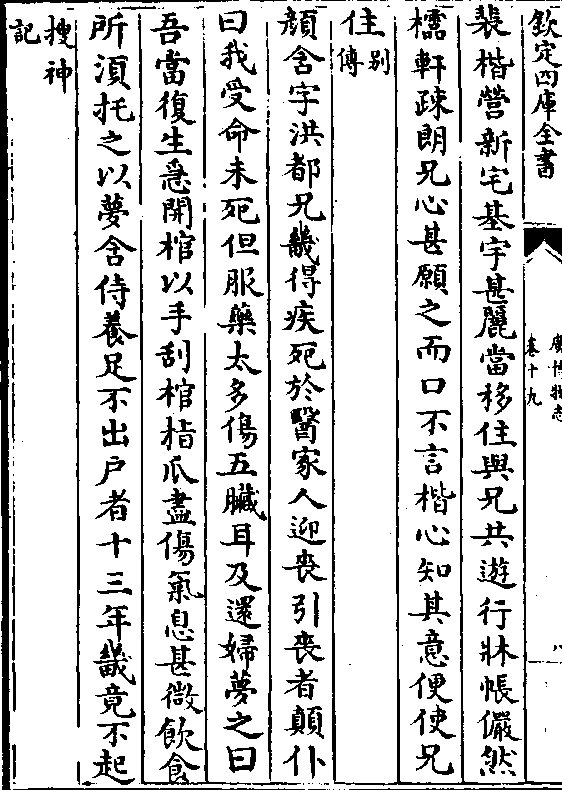 欽定四庫全書
廣博物志
卷十九
八
裴楷營新宅基宇甚麗當移住與兄共遊行牀帳儼然
櫺軒疎朗兄心甚願之而口不言楷心知其意便使兄
住別傳
顔含字洪都兄畿得疾死於醫家人迎喪引喪者顛仆
曰我受命未死但服藥太多傷五臟耳及還婦夢之曰
吾當復生急開棺以手刮棺指爪盡傷氣息甚微飲食
所須托之以夢含侍養足不出户者十三年畿竟不起
搜神記